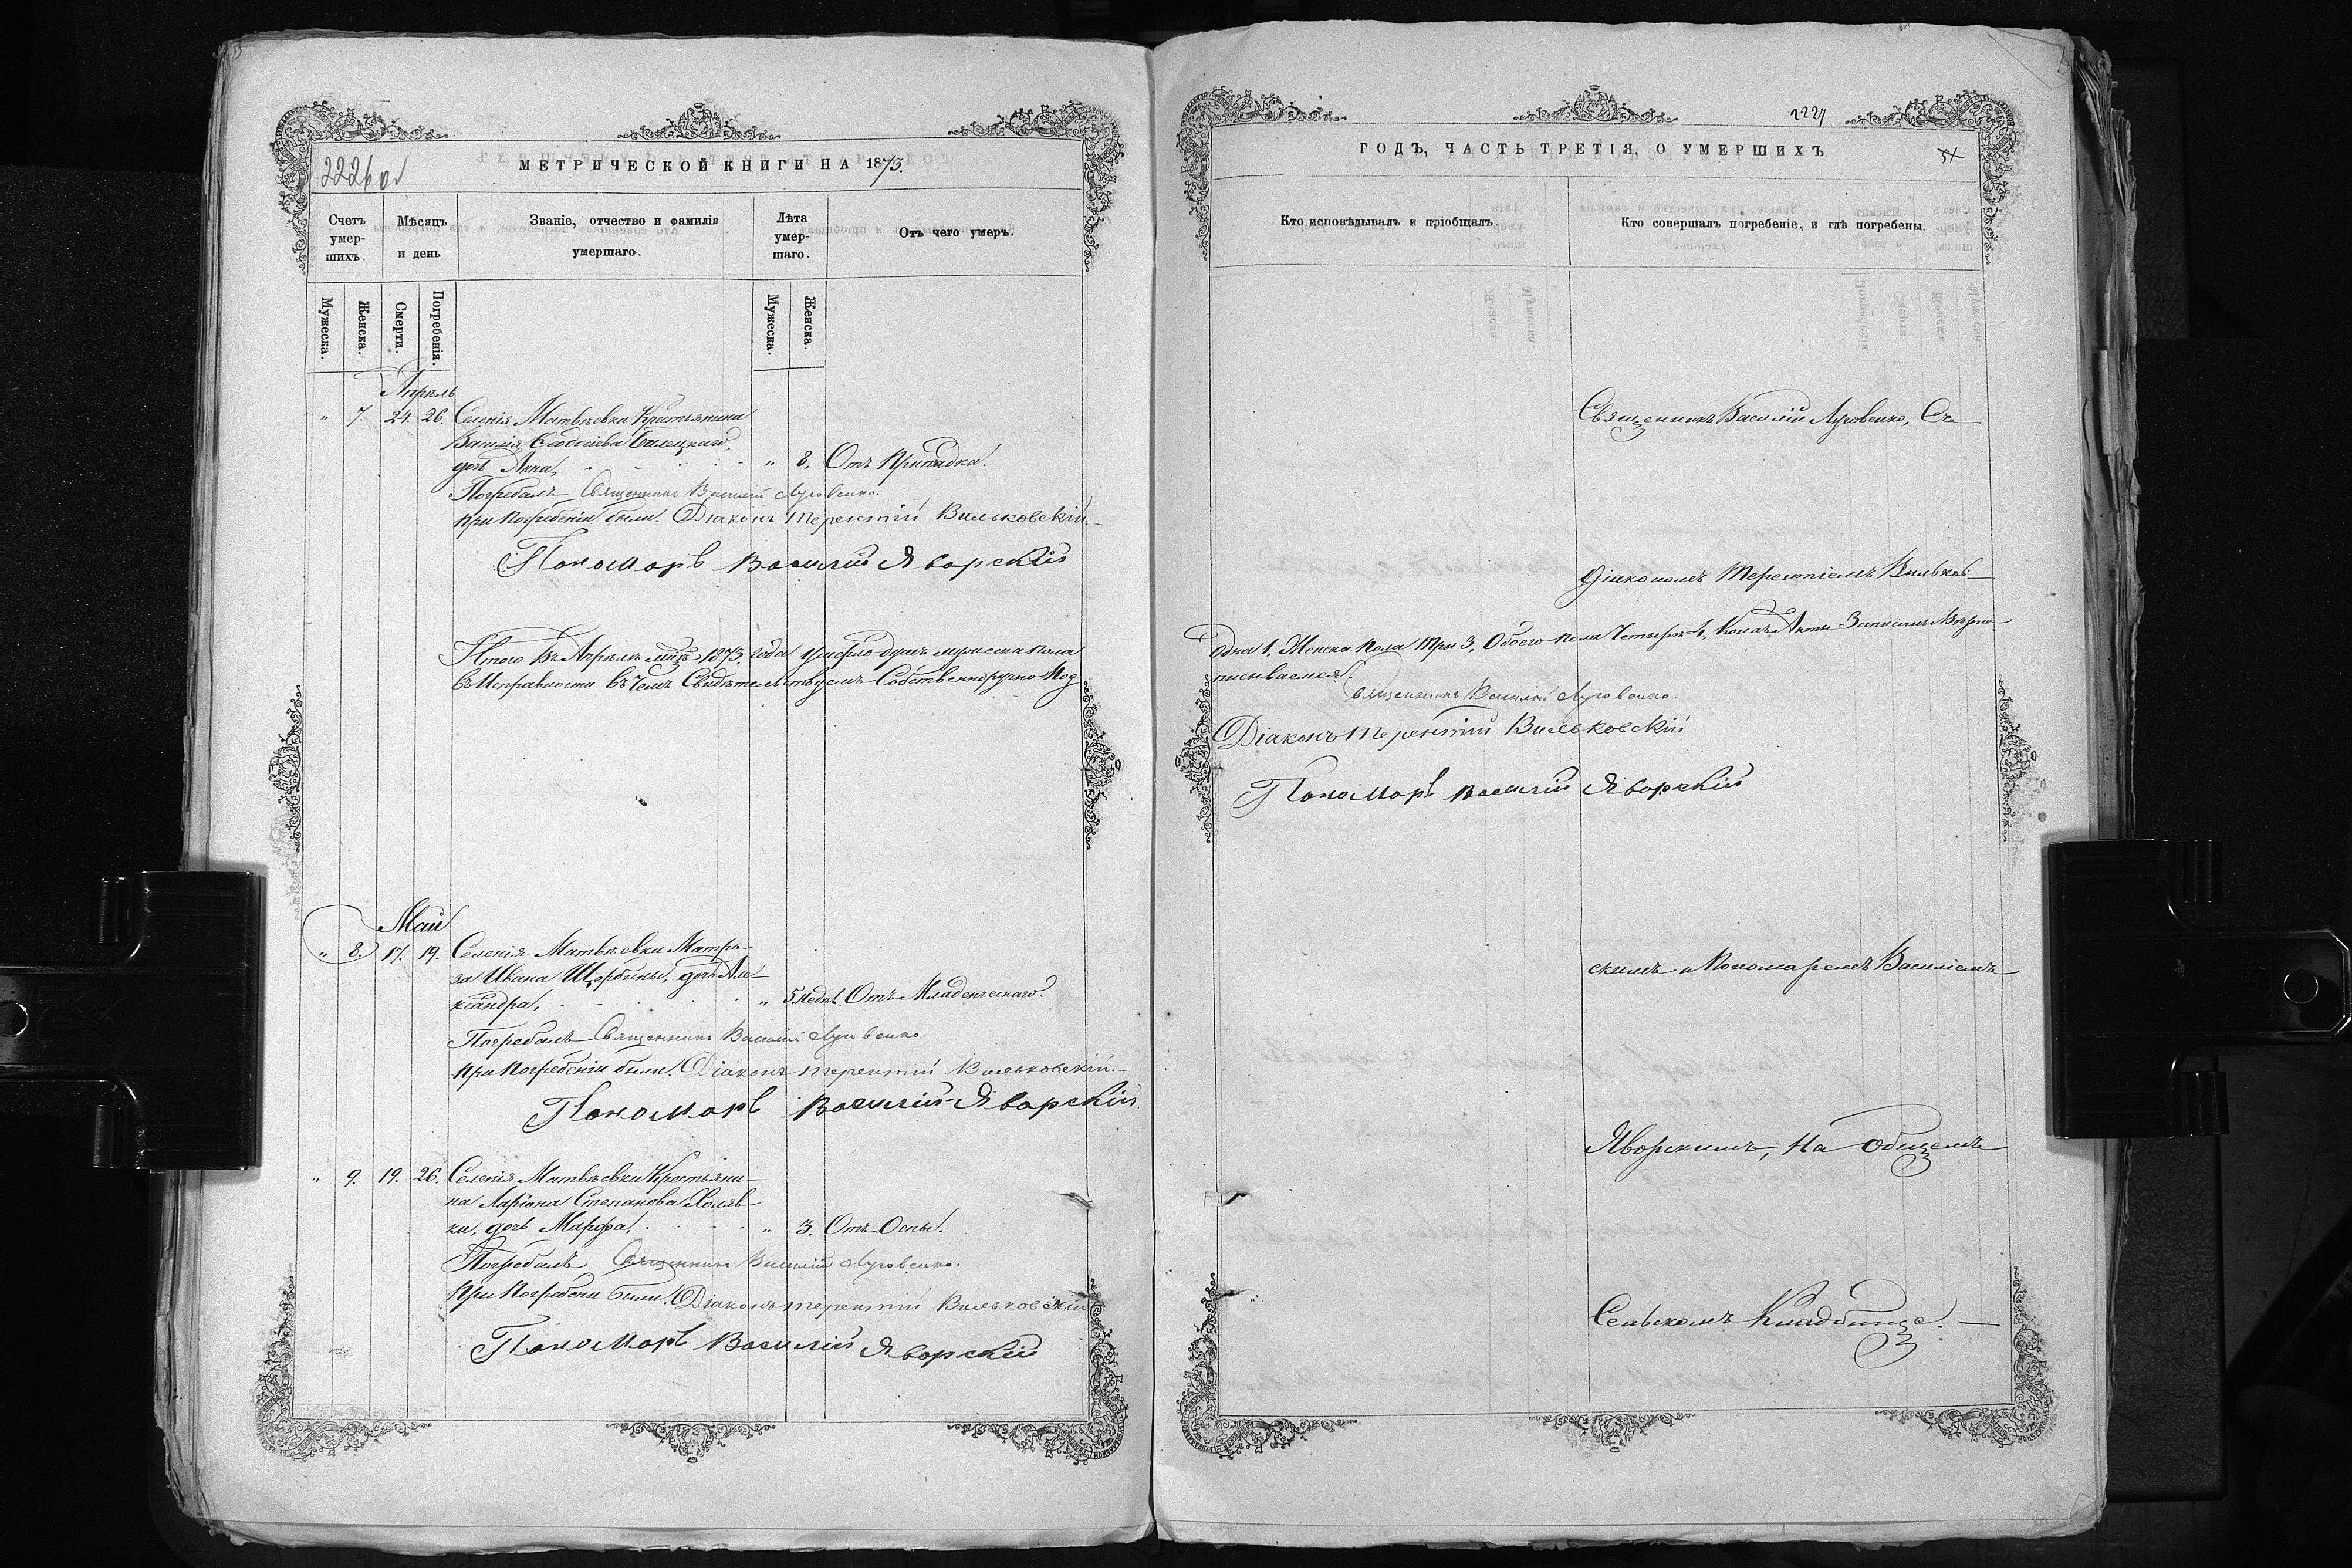 2226 об
МЕТРИЧЕСКОЙ КНИГИ НА 1873.
Счетъ умер-шихъ.
Мѣсяцъ и день
Званіе, отчество и фамилія умершаго.
Лѣта умер-шаго.
Отъ чего умеръ.
Мужеска.
Женска.
Смерти.
Погребенія.
Мужеска.
Женска.
Апрѣль
" 7. 24. 26. Селенія Матвѣевки Крестьянина
Василія Билецкаго,
дочь Анна, " 8. Отъ Припадка.
Погребалъ Священникъ Василій Луговенко.
При Погребеніи были: Діаконъ Терентій Вильковскій.
Пономарь Василій Яворскій
Итого въ Апрѣлѣ м-цѣ 1873. года умерло душъ мужеска пола
въ Исправности въ Чемъ Свидѣтельствуемъ Собственноручно Под
Май
" 8. 17. 19. Селенія Матвѣевки Матро-
за Ивана Щербины, дочь Але-
ксандра, " 5. недѣ. Отъ Младенческаго.
Погребалъ Священникъ Василій Луговенко.
При Погребеніи были: Діаконъ Терентій Вильковскій.
Пономарь Василій Яворскій.
" 9. 19. 26. Селенія Матвѣевки Крестьяни-
на Ларіона Степанова Холяв
ки, дочь Марфа, " 3. Отъ Оспы.
Погребалъ Священникъ Василій Луговенко.
При Погребени были: Діаконъ Терентій Вильковскій
Пономарь Василій Яворскій
2227
ГОДЪ, ЧАСТЬ ТРЕТІЯ, О УМЕРШИХЪ
Кто исповѣдывалъ и пріобщалъ.
Кто совершалъ погребеніе, и гдѣ погребены.
Священникъ Василій Луговенко, Съ
Діакономъ Терентіемъ Вильков
Одна 1. Женска Пола Три 3. Обоего Пола Четыре 4. Коихъ Акты Записаны Вѣрно
писываемся.
Священникъ Василій Луговенко.
Діаконъ Терентій Вильковскій
Пономарь Василій Яворскій
скимъ и Пономаремъ Василіемъ
Яворскимъ, На Общемъ
Сельскомъ Кладбище.